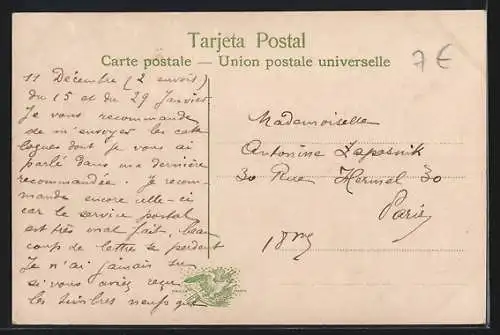 Tarjeta Postal
Carte postale — Union postale universelle
7€
11 Décembre (2 envois)
du 15 et du 29 Janvier
Je vous recommande
de m'envoyer les cata
logues dont je vous ai
parlé dans ma dernière
recommandée. Je recom-
mande encore celle-ci
car le service postal
est très mal fait, beau
coup de lettres se perdent
Je n'ai jamais su
si vous aviez reçu
les timbres neufs que
Mademoiselle
Antonine Zaposnik
30 Rue Hermel 30
Paris
18me